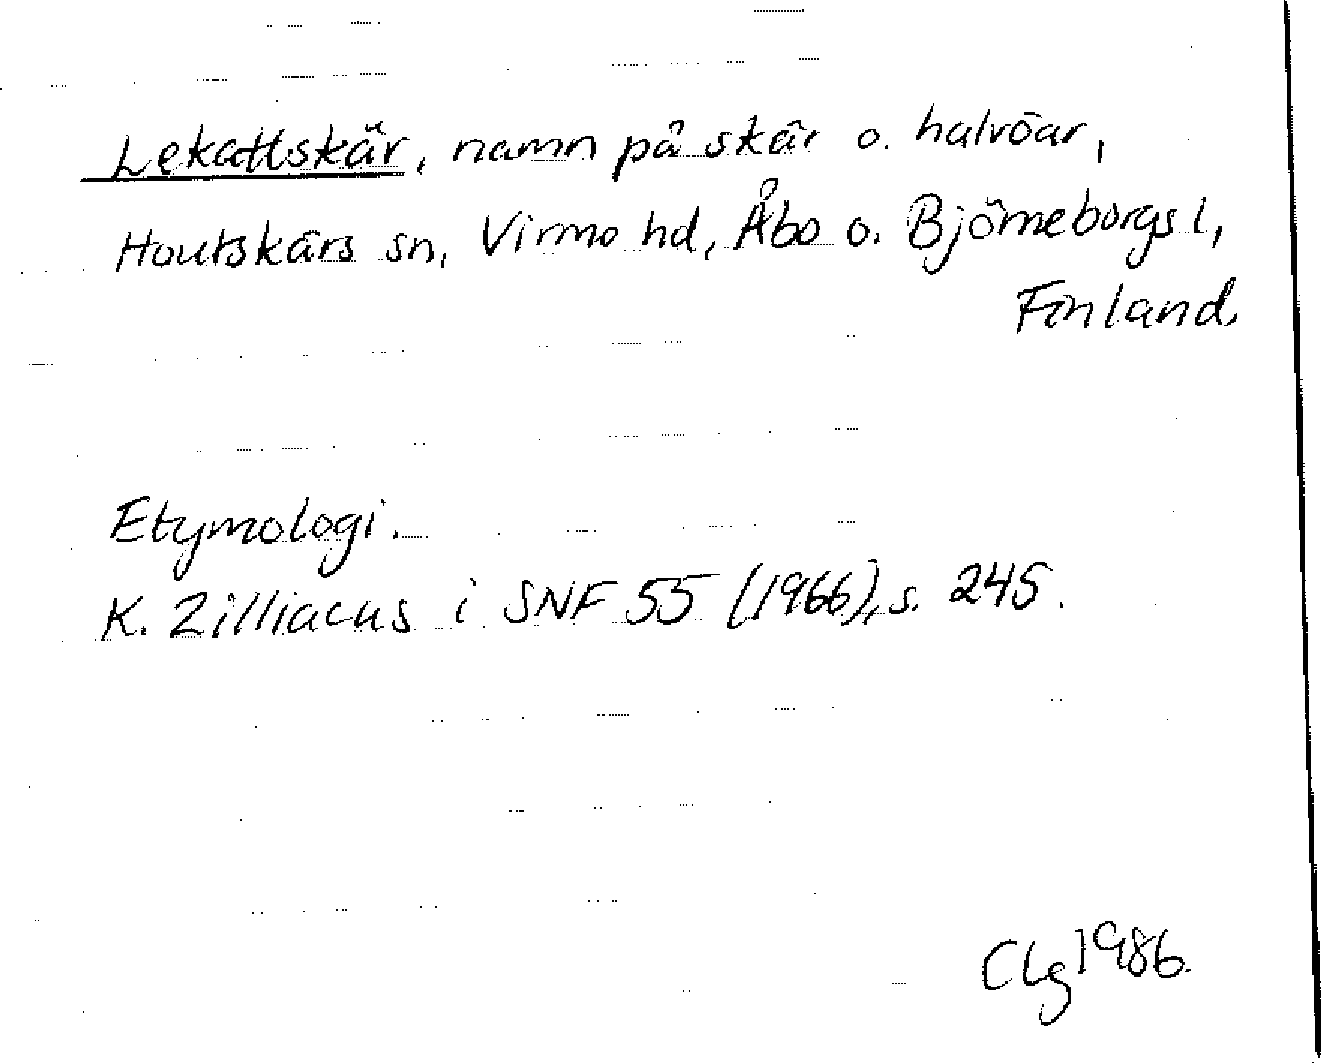 Lekattskär, namn på skär o. halvöar,
Houtskärs sn, Virmo hd, Åbo o. Björneborgs l,
Finland.
Etymologi.
K. Zilliacus i SNF 55 (1966), s. 245.
CLg 1986.